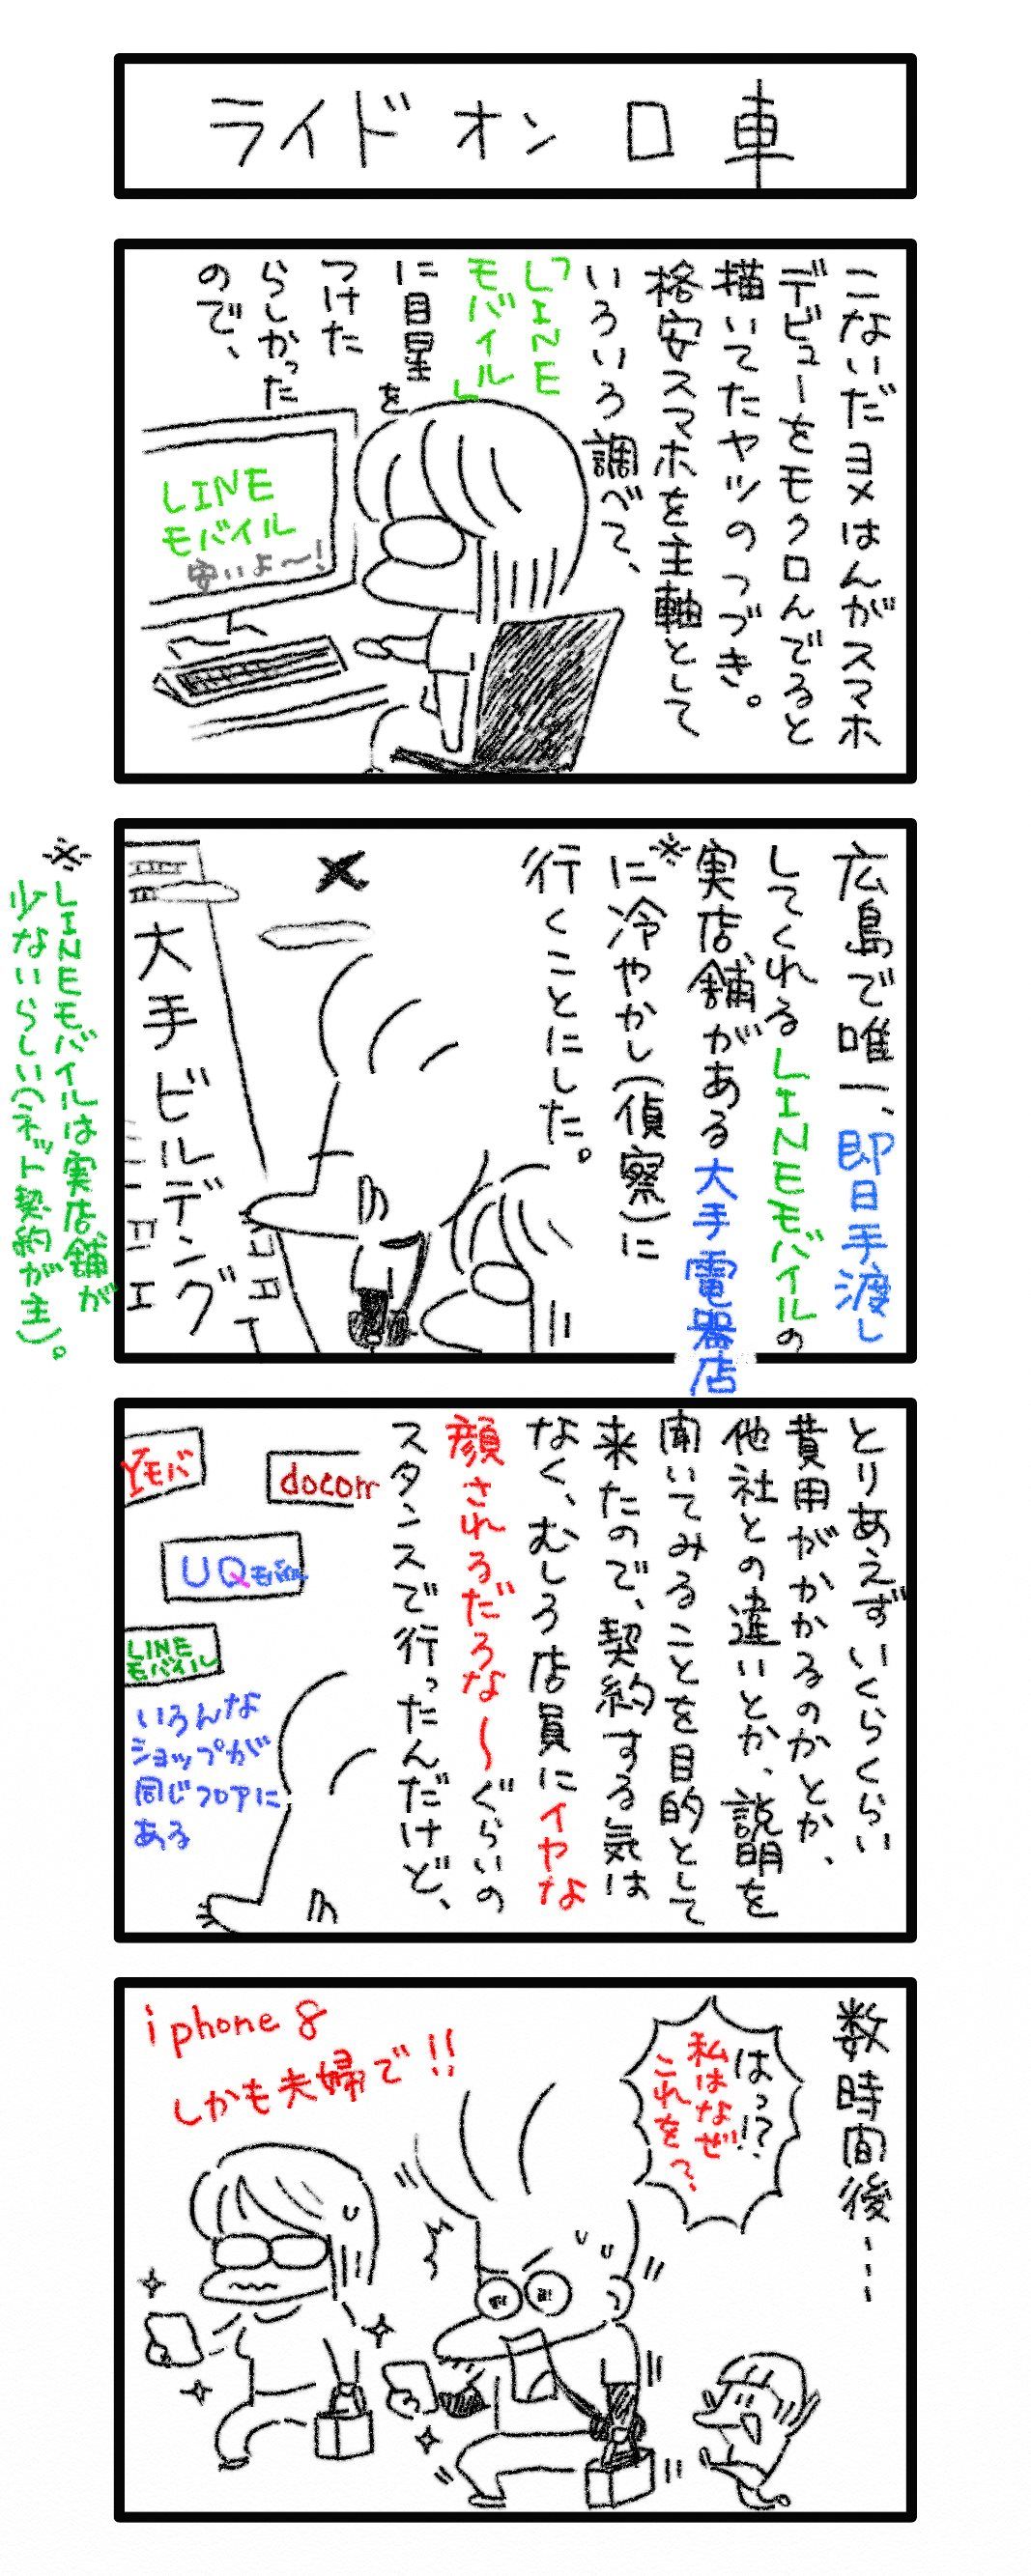 ライドオン口車
こないだヨメはんがスマホ
デビューをモクロんでると
描いてたヤツのつづき。
格安スマホを主軸として
いろいろ調べて、
「LINE
モバイル」
に目星を
つけた
らしかった
ので、
LINE
モバイル
安いよ〜!
広島で唯一、即日手渡し
してくれるLINEモバイルの
実店舗がある大手電器店
※
に冷やかし(偵察)に
行くことにした。
大手ビルデング
※
LINEモバイルは実店舗が
少ないらしい(ネット契約が主)。
とりあえずいくらくらい
費用がかかるのかとか、
他社との違いとか、説明を
聞いてみることを目的として
来たので、契約する気は
なく、むしろ店員にイヤな
顔されるだろな〜ぐらいの
スタンスで行ったんだけど、
docom
Yモバ
UQモバイル
LINE
モバイル
いろんな
ショップが
同じフロアに
ある
数時間後……
はっ!?
私はなぜ
これを?
iphone8
しかも夫婦で!!